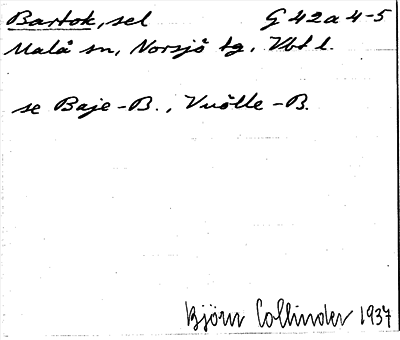 Bartok, sel G 42a 4-5
Malå sn, Norsjö tg, Vbt l.
se Baje-B., Vuölle-B.
Björn Collinder 1937